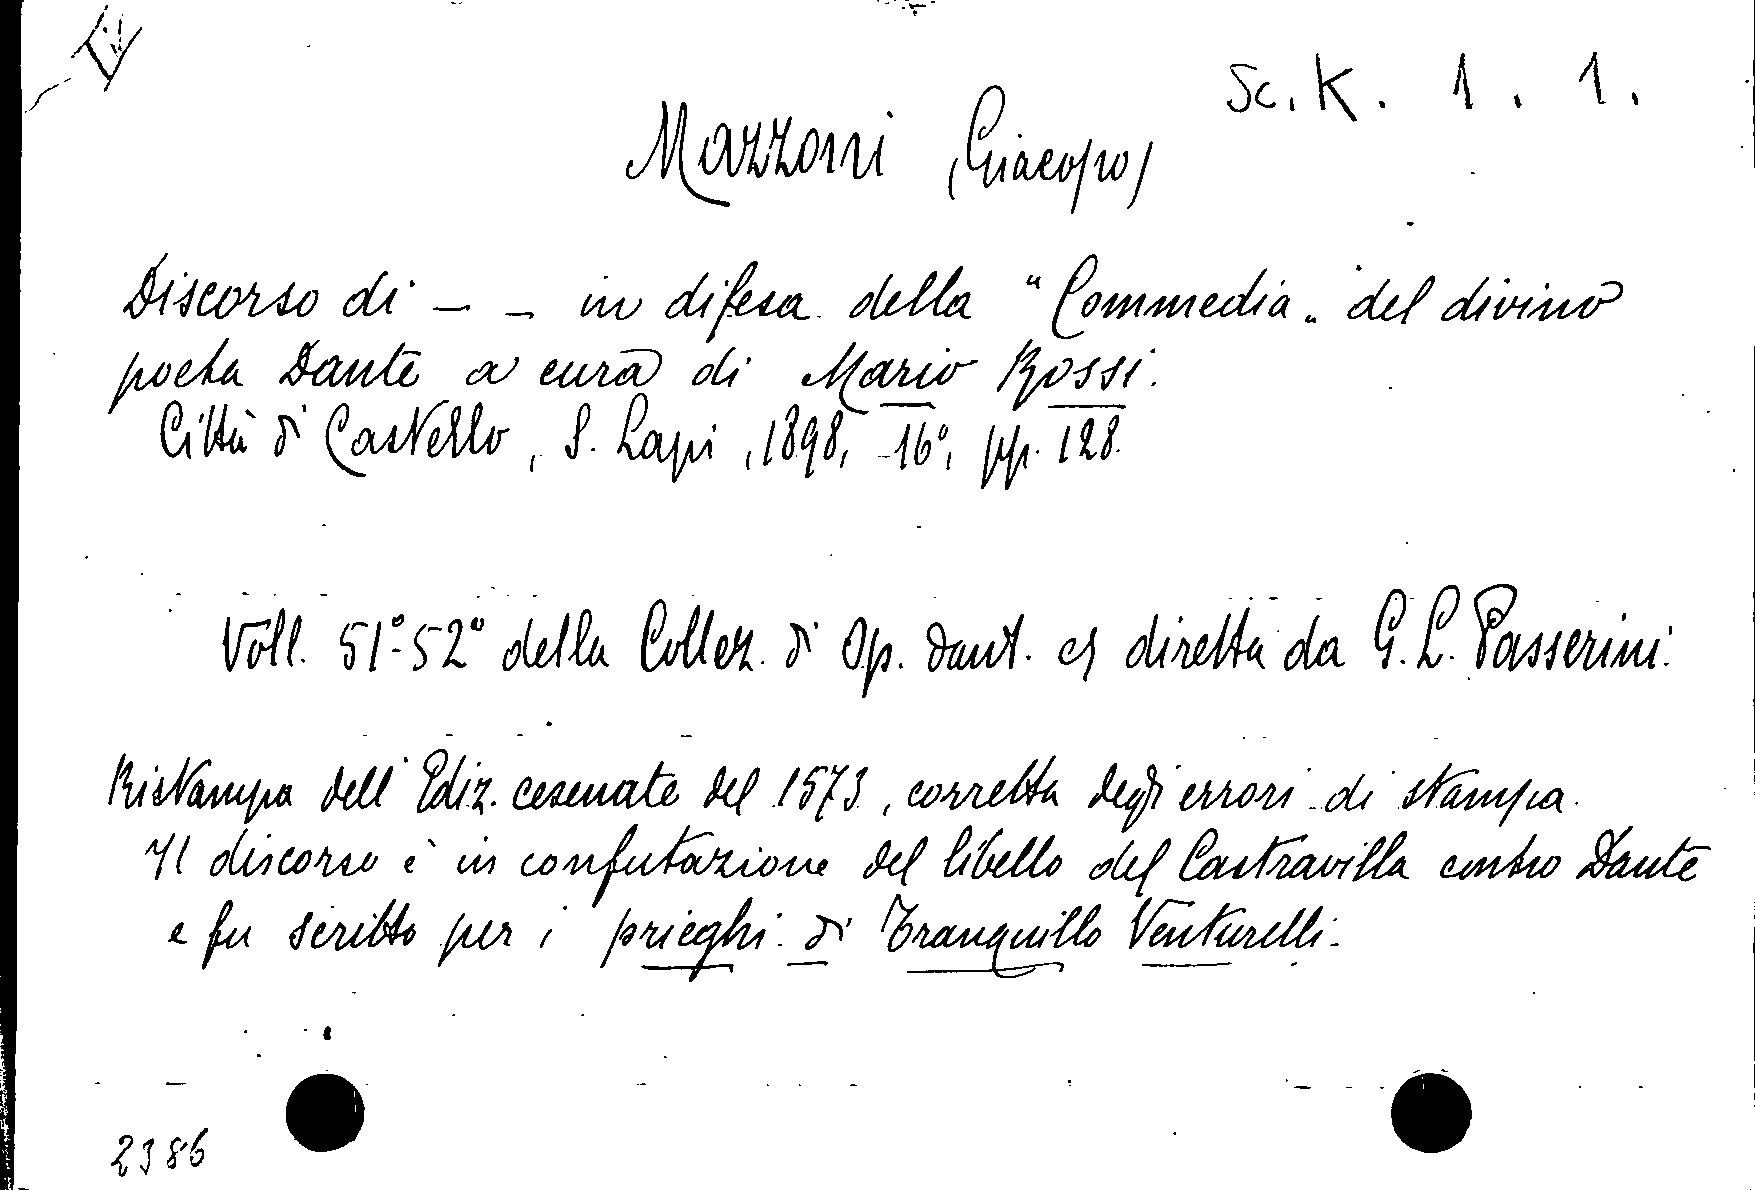 Sc. K. 1. 1.
Mazzoni (Giacopo)
Discorso di — — in difesa della "Commedia„ del divino
poeta Dante a cura di Mario Rossi.
Città di Castello, S. Lapi, 1898, 16°, pp. 128.
Voll. 51°-52° della Collez. di Op. dant. diretta da G. L. Passerini.
Ristampa dell' Ediz. cesenate del 1573, corretta degli errori di stampa.
Il discorso è in confutazione del libello del Castravilla contro Dante
e fu scritto per i prieghi di Tranquillo Venturelli.
2386